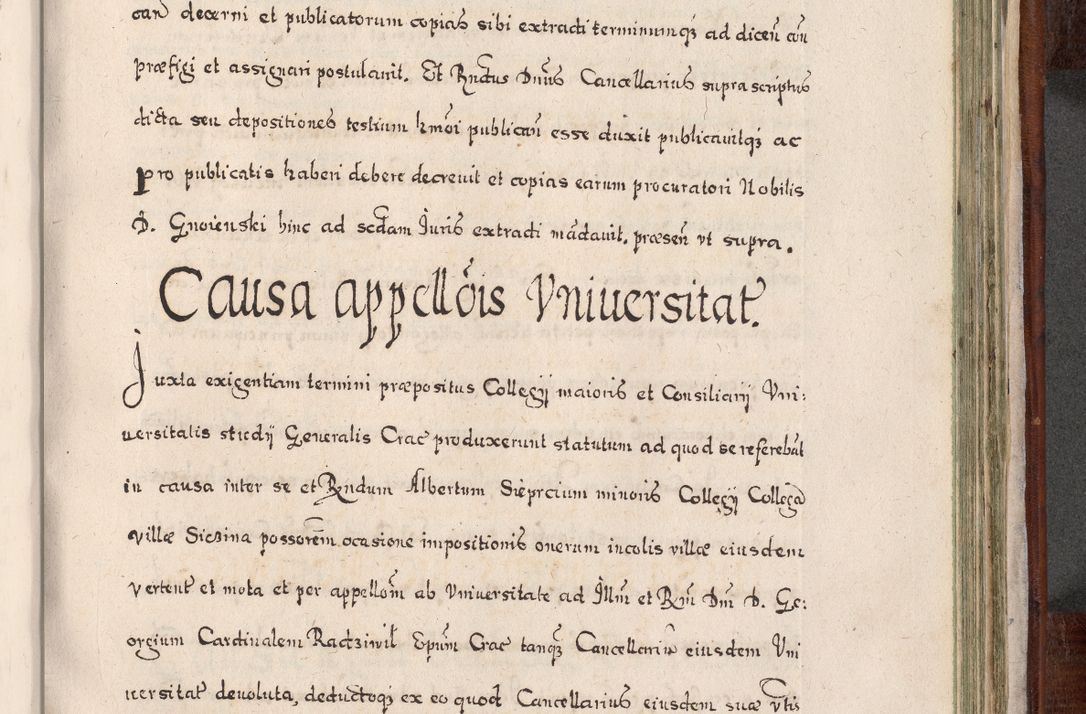 can decerni et publicatorum copias sibi extradi terminumqȝ ad dicen con
præfigi et assignari postulauit. Et Rndus Dnus Cancellarius supra scriptus
dicta seu depositiones testium hmoi publican esse duxit publicauitqȝ ac
pro publicatis haberi debere decreuit et copias earum procuratori Nobilis
D. Gnoienski hinc ad scdam Juris extradi mãdauit. præsen vt supra.
Causa appellõis Vniuersitat.
Juxta exigentiam termini præpositus Collegij maioris et Consiliarij Vni:
uersitatis studij Generalis Crac produxerunt statutum ad quod se referebãt
in causa inter se et Rndum Albertum minoris Collegij Collegã
villæ Siczina possorem ocasione impositionis onerum incolis villæ eiusdem
vertent et mota et per appellom ab Vniuersitate ad Illm et Rm Dm D. Ge:
orgium Cardinalem Radziwil Epum Crac tanqȝ Cancellariũ eiusdem Vni
uersitat deuoluta, deductoqȝ ex eo quod Cancellarius eiusdem suæ Vtis